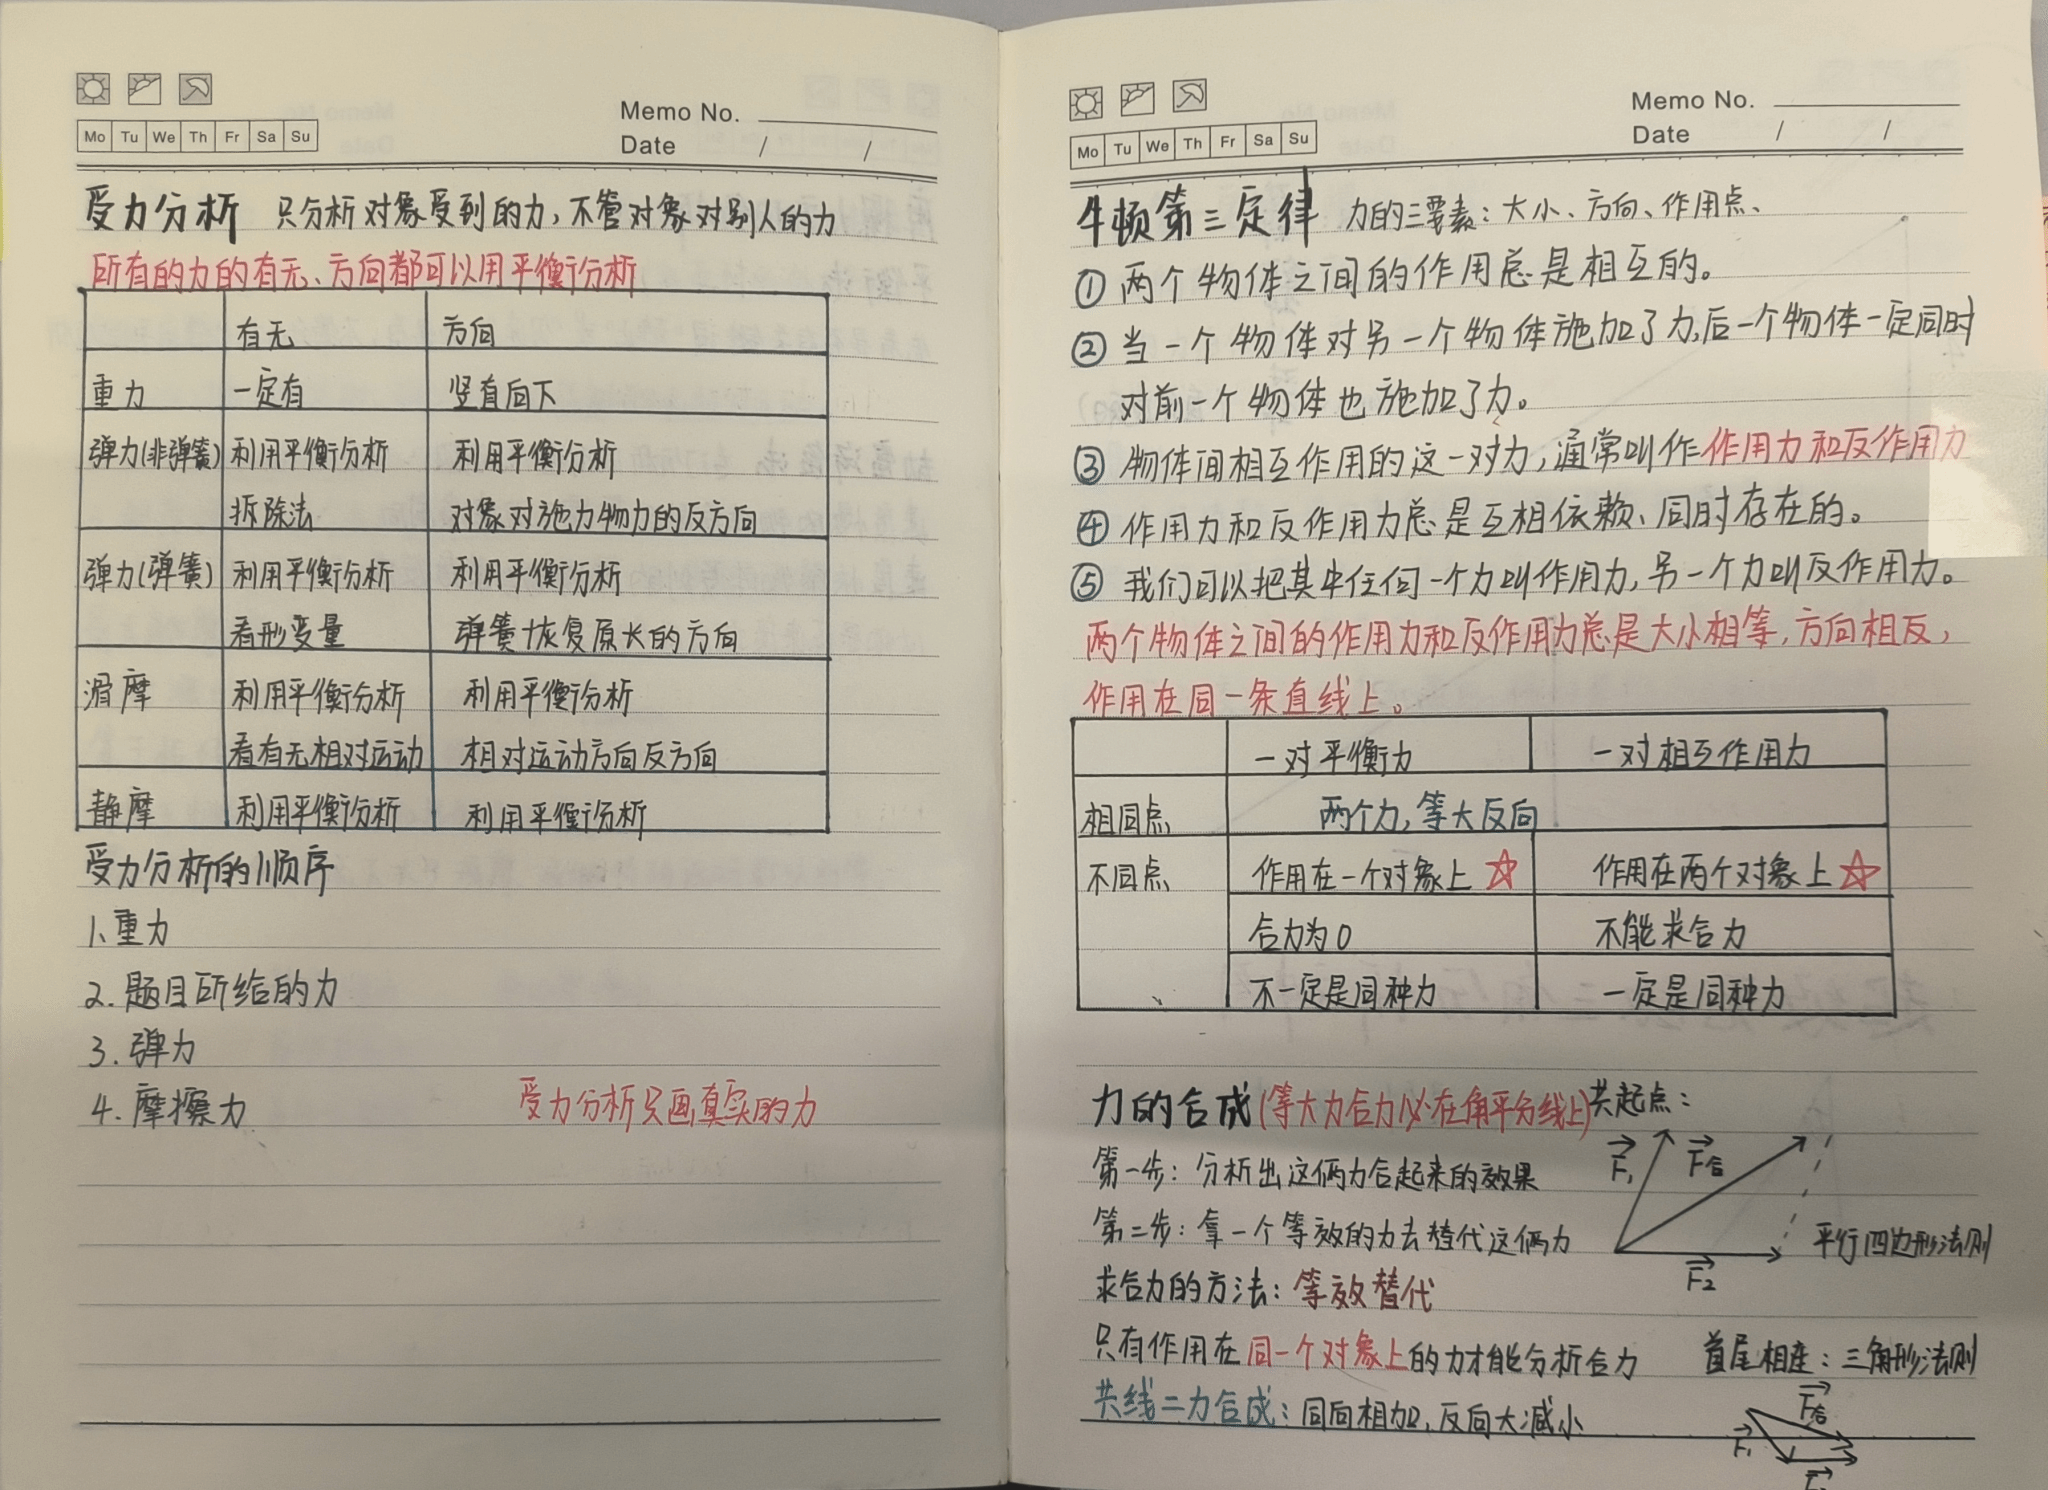 Memo No.
Mo Tu We Th Fr Sa Su
Date / /
受力分析 只分析对象受到的力,不管对象对别人的力
所有的力的有无、方向都可以用平衡分析
有无 方向
重力 一定有 竖直向下
弹力(非弹簧) 利用平衡分析 利用平衡分析
拆除法 对象对施力物力的反方向
弹力(弹簧) 利用平衡分析 利用平衡分析
看形变量 弹簧恢复原长的方向
滑摩 利用平衡分析 利用平衡分析
看有无相对运动 相对运动方向反方向
静摩 利用平衡分析 利用平衡分析
受力分析的顺序
1、重力
2.题目所给的力
3.弹力
4.摩擦力 受力分析只画真实的力
Memo No.
Mo Tu We Th Fr Sa Su
Date / /
牛顿第三定律 力的三要素:大小、方向、作用点、
① 两个物体之间的作用总是相互的。
② 当一个物体对另一个物体施加了力,后一个物体一定同时
对前一个物体也施加了力。
③ 物体间相互作用的这一对力,通常叫作作用力和反作用力
④ 作用力和反作用力总是互相依赖、同时存在的。
⑤ 我们可以把其中任何一个力叫作用力,另一个力叫反作用力。
两个物体之间的作用力和反作用力总是大小相等,方向相反,
作用在同一条直线上。
一对平衡力 一对相互作用力
相同点 两个力,等大反向
不同点 作用在一个对象上☆ 作用在两个对象上☆
合力为0 不能求合力
不一定是同种力 一定是同种力
力的合成(等大力合力必在角平分线上) 共起点:
F₁ F合
第一步:分析出这俩力合起来的效果
第二步:拿一个等效的力去替代这俩力 平行四边形法则
F₂
求合力的方法:等效替代
只有作用在同一个对象上的力才能分析合力 首尾相连:三角形法则
共线二力合成:同向相加,反向大减小
F合
F₁